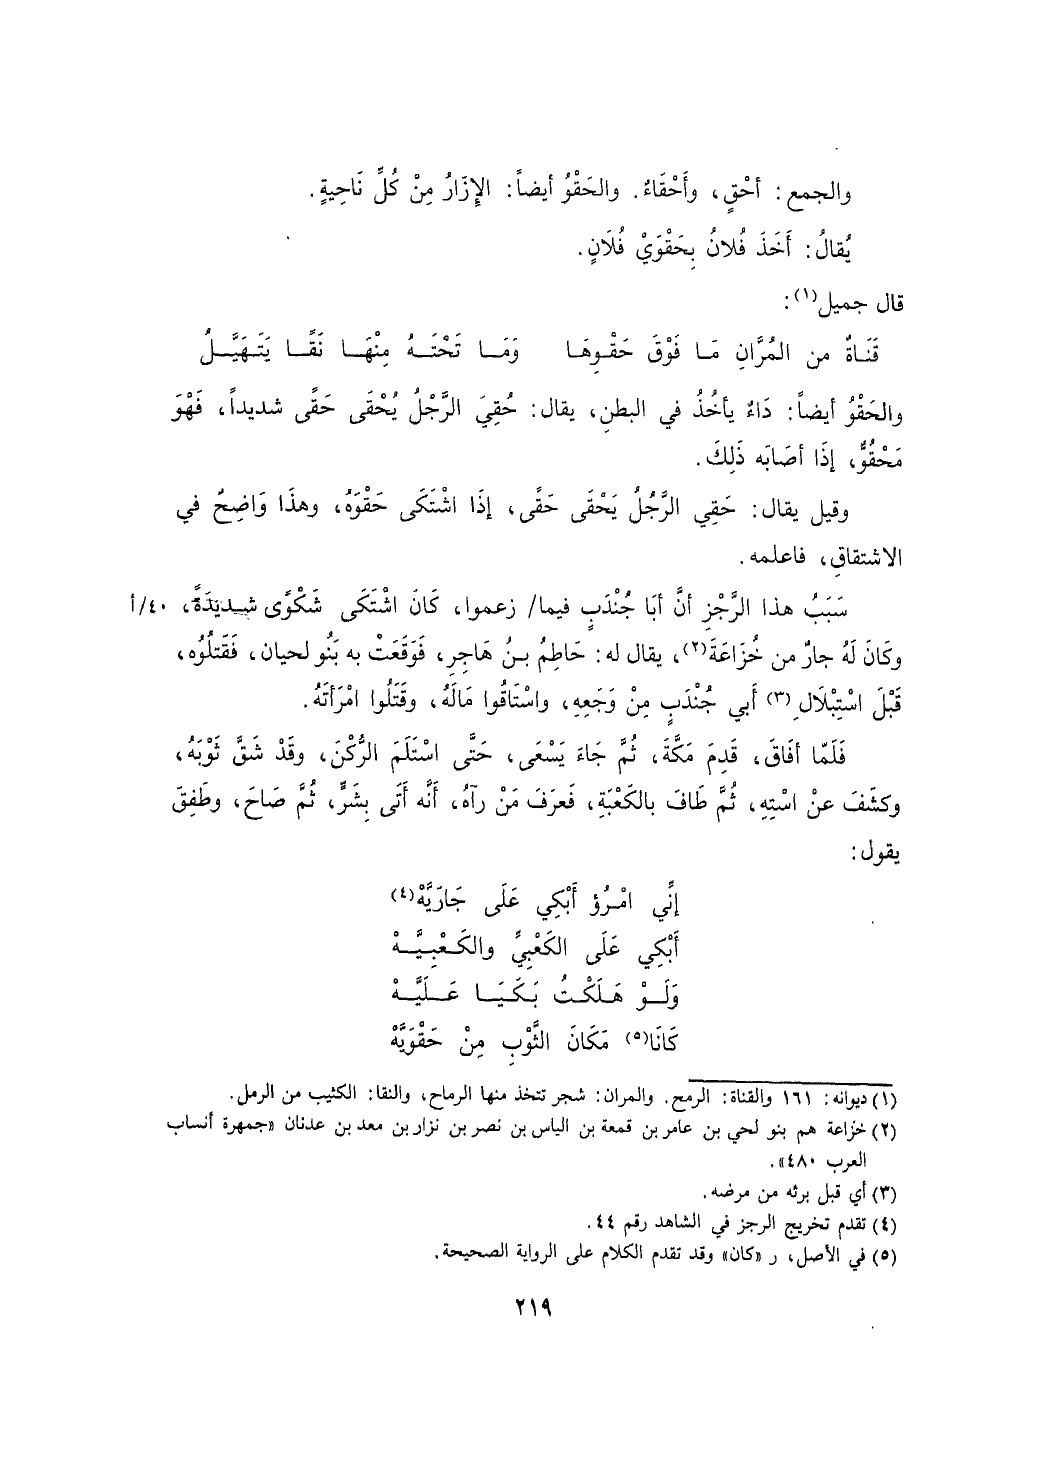 والجمع: أحْقٍ، وأَحْقَاءٌ. والحَقْوُ أيضاً: الإزَارُ مِنْ كُلِّ نَاحِيةٍ.
يُقالُ: أَخَذَ فُلانُ بِحَقْوَيْ فُلَانٍ.
قال جميل(١):
قَنَاةٌ من المُرَّانِ مَا فَوْقَ حَقْوِهَا وَمَا تَحْتَهُ مِنْهَا نَقًا يَتَهَيَّلُ
والحَقْوُ أيضاً: دَاءٌ يأخُذُ في البطنِ، يقال: حُقِيَ الرَّجْلُ يُحْقَى حَقًى شديداً، فَهْوَ
مَحْقُوٌّ، إذَا أصَابَه ذَلِكَ.
وقيل يقال: حَقِي الرَّجُلُ يَحْقَى حَقًى، إذَا اشْتَكَى حَقْوَهُ، وهذَا وَاضِحٌ في
الاشتقاقِ، فاعلمه.
سَبَبُ هذا الرَّجْزِ أنَّ أبَا جُنْدَبٍ فيما/ زعموا، كَانَ اشْتَكَى شَكْوًى شَديدَةً، ٤٠/أ
وكَانَ لَهُ جارٌ من خُزَاعَةَ(٢)، يقال له: حَاطِمُ بنُ هَاجِرِ، فَوَقَعَتْ به بَنُو لحيان، فَقَتلُوُه،
قَبْلَ اسْتِبْلَالِ(٣) أَبي جُنْدَبٍ مِنْ وَجَعِهِ، واسْتَاقُوا مَالَهُ، وقَتَلُوا امْرَأتَهُ.
فَلَمّا أفَاقَ، قَدِمَ مَكَّةَ، ثُمَّ جَاءَ يَسْعَى، حَتَّى اسْتَلَمَ الرُّكْنَ، وقَدْ شَقَّ ثَوْبَهُ،
وكشَفَ عنْ اسْتِهِ، ثُمَّ طَافَ بالكَعْبَةِ، فَعرَفَ مَنْ رآهُ، أَنَّه أتَى بِشَرٍّ، ثُمَّ صَاحَ، وطَفِقَ
يقول:
إنِّي امْرُؤ أَبْكِي عَلَى جَارَيَّهْ(٤)
أَبْكِي عَلَى الكَعْبِيِّ والكَعْبِيَّهْ
وَلَوْ هَلَكْتُ بَكَيَا عَلَيَّهْ
كَانَا(٥) مَكَانَ الثَّوْبِ مِنْ حَقْوَيَّهْ
(١) ديوانه: ١٦١ والقناة: الرمح. والمران: شجر تتخذ منها الرماح، والنقا: الكثيب من الرمل.
(٢) خزاعة هم بنو لحي بن عامر بن قمعة بن الياس بن نصر بن نزار بن معد بن عدنان «جمهرة أنساب
العرب ٤٨٠».
(٣) أي قبل برئه من مرضه.
(٤) تقدم تخريج الرجز في الشاهد رقم ٤٤.
(٥) في الأصل، ر «كان» وقد تقدم الكلام على الرواية الصحيحة.
٢١٩